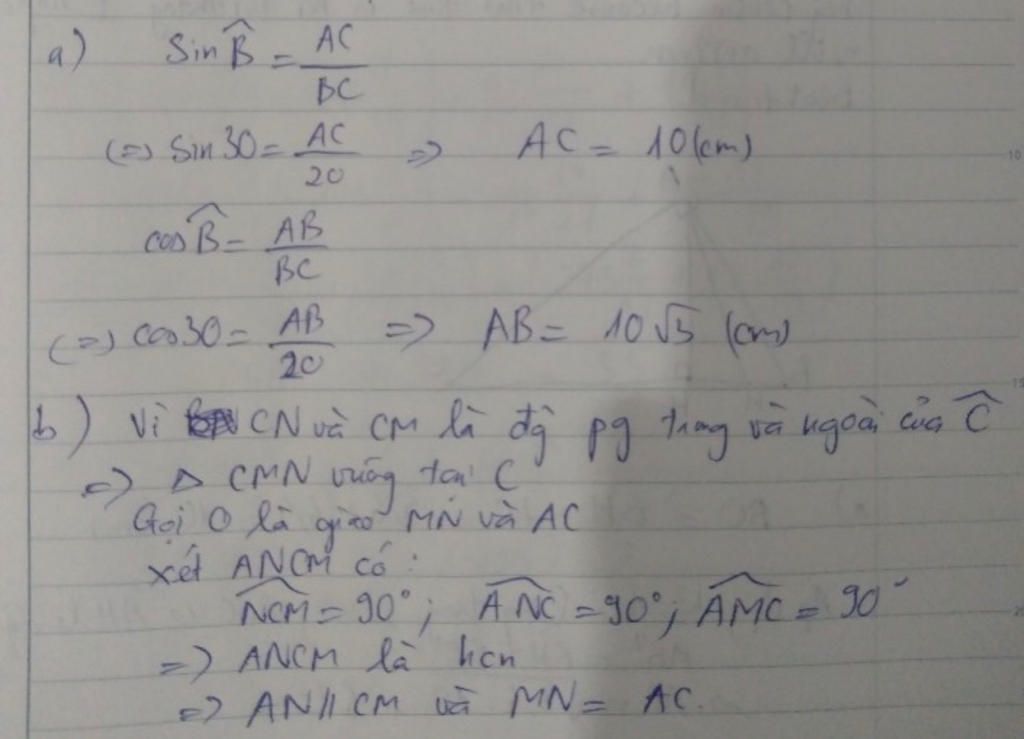 a) Sin B̂ = AC/BC
(=) Sin30 = AC/20 => AC = 10 (cm)
cos B̂ = AB/BC
(=) cos30 = AB/20 => AB = 10√3 (cm)
b) Vì CN và CM là đg pg trong và ngoài của Ĉ
=> Δ CMN vuông tại C
Gọi O là giao MN và AC
xét ANCM có:
N̂CM = 90°; ÂNC = 90°; ÂMC = 90°
=> ANCM là hcn
=> AN // CM và MN = AC.